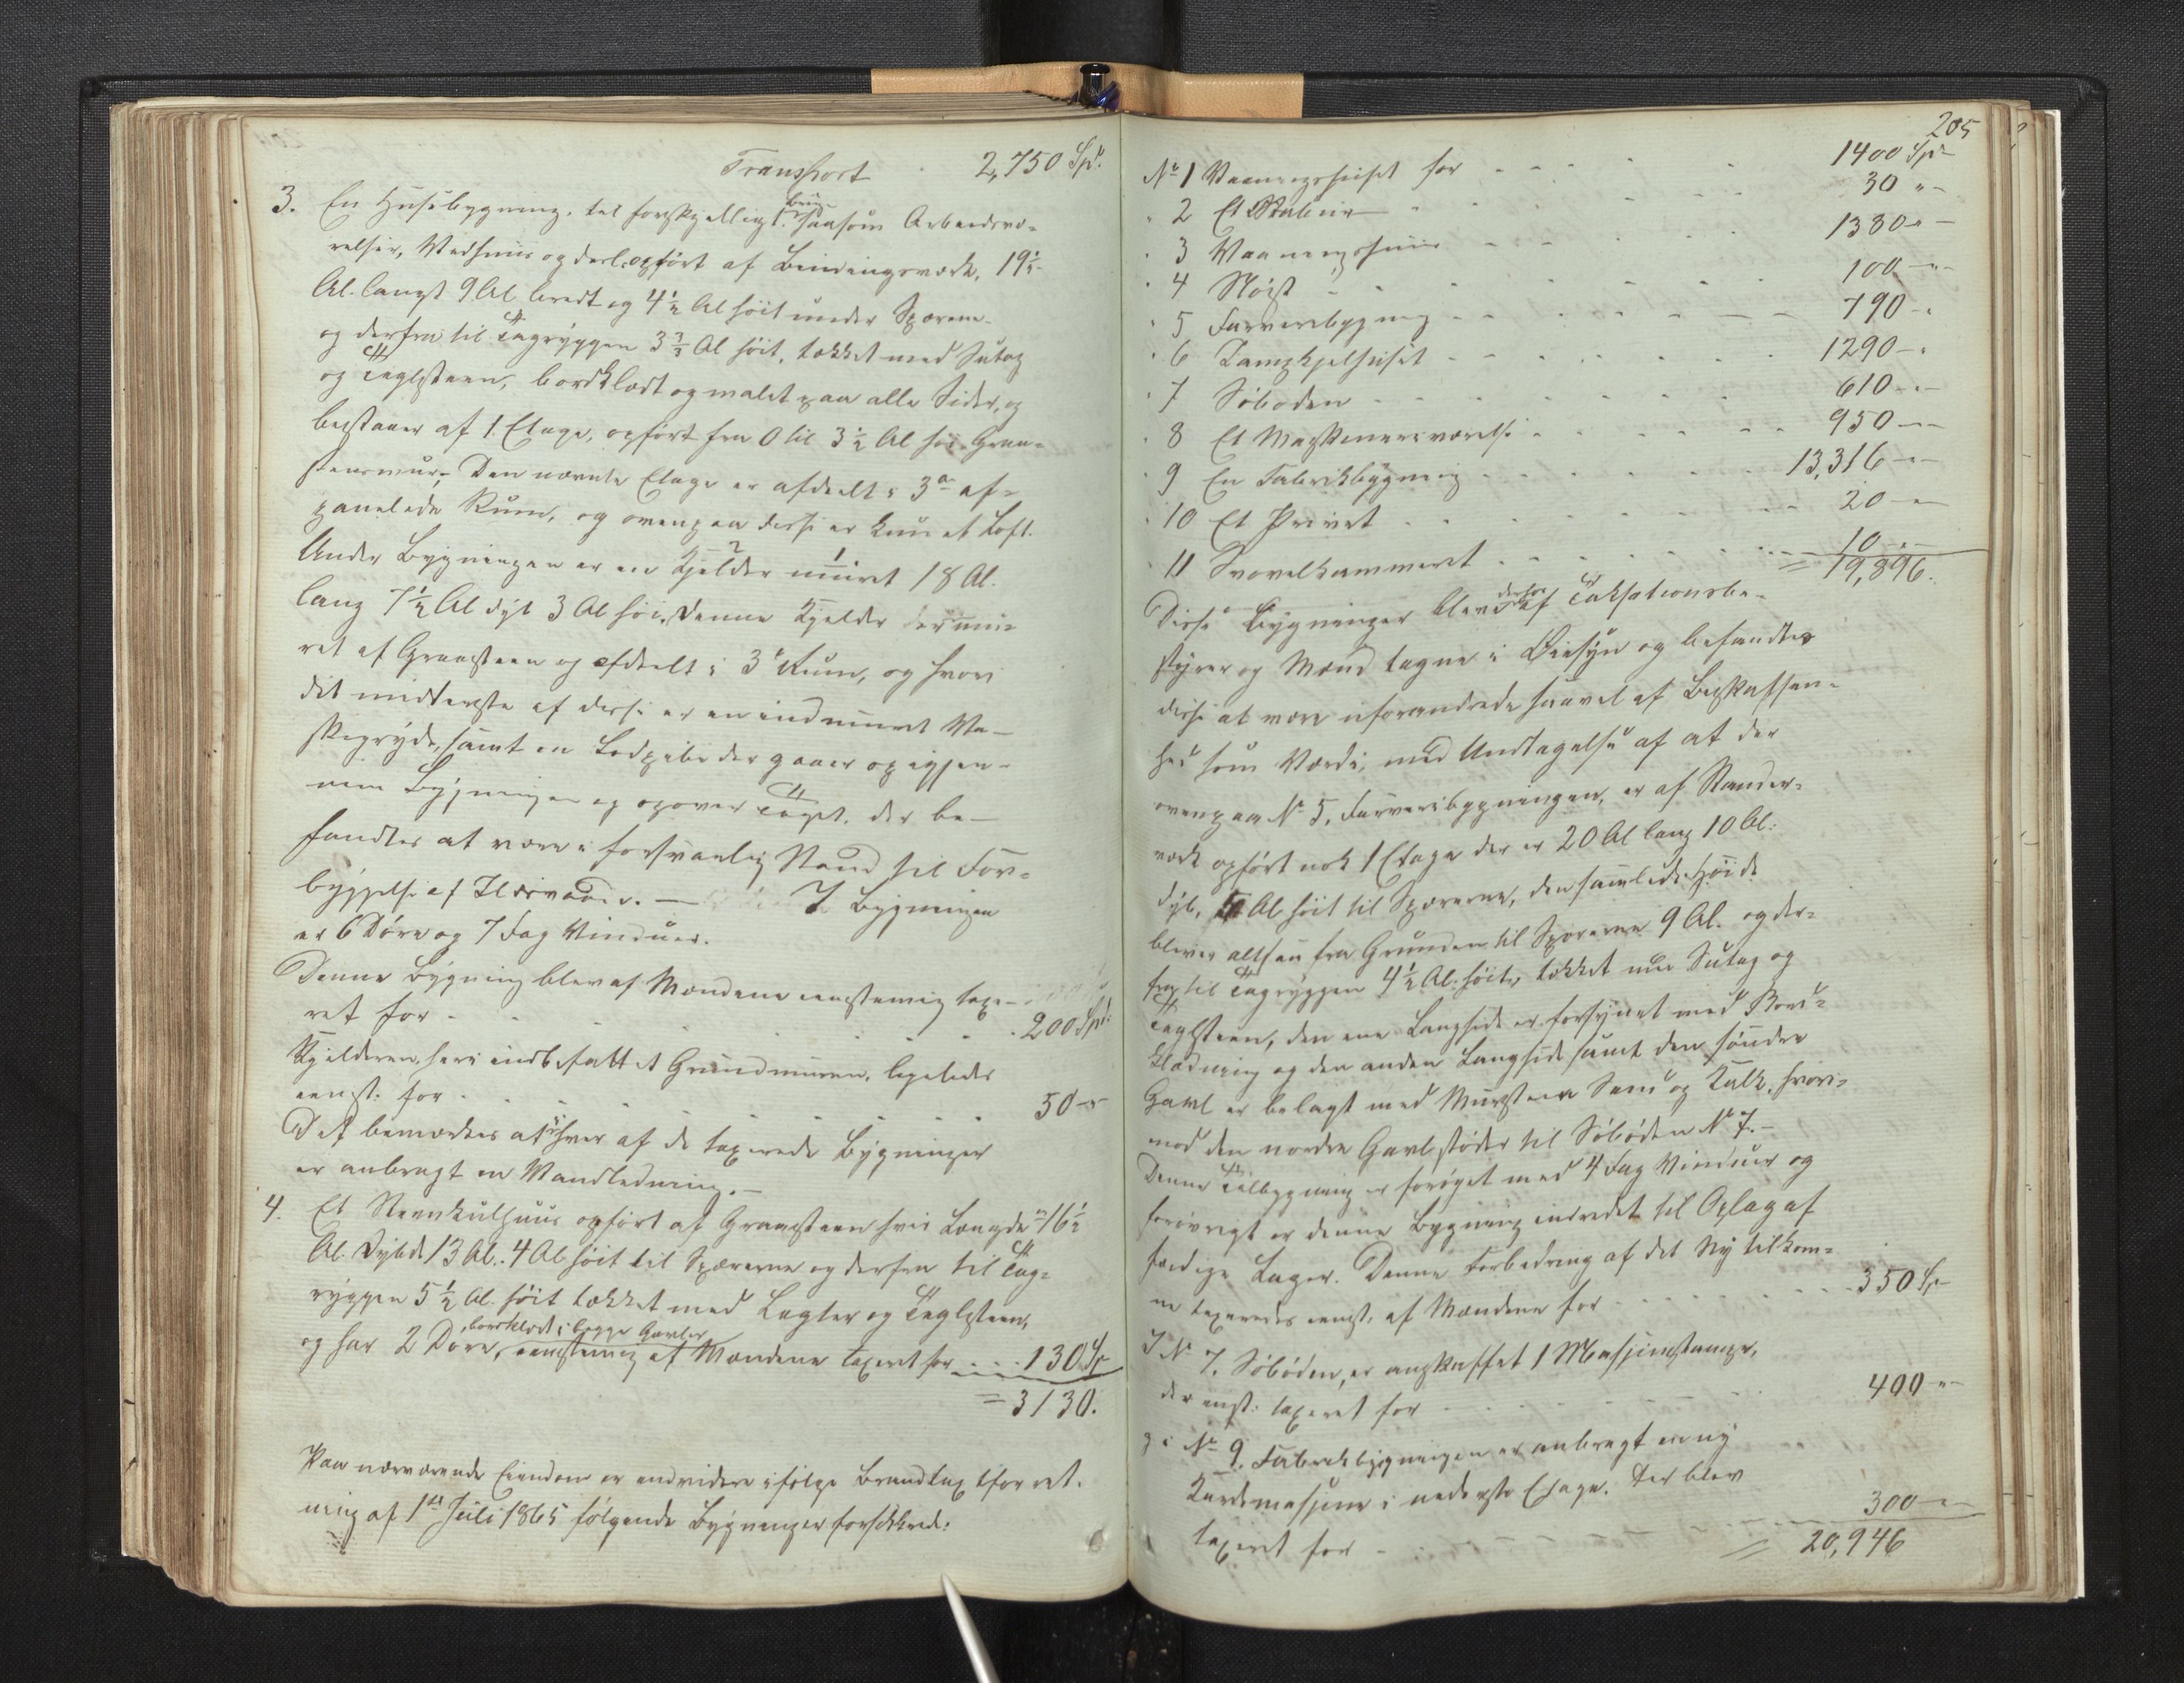 Transport . 2,750 Spd.
3. En Huusbygning, til forskjelligt Brug saasom Arbeidsvæ-
relser, Vedhuus og desl. opført af Bindingsværk, 19½
Al. langt 9 Al bredt og 4½ Al høit under Spærene
og derfra til Tagryggen 3½ Al høit, tækket med Sutag
og Teglsteen, bordklædt og malet paa alle Sider, og
bestaaer af 1 Etage, opført fra 0 til 3½ Al høi Graa-
steensmuur. Den nævnte Etage er afdeelt i 3de af-
panelede Rum, og ovenpaa disse er kun et Loft.
Under Bygningen er en Kjelder muret 18 Al.
lang 7½ Al dyb 3 Al høi, denne Kjelder er mu-
ret af Graasteen og afdeelt i 3de Rum, og hvori
det midterste af disse er en indmuret Va-
skegryde, samt en Lodpibe der gaaer op igjen-
nem Bygningen og opover Taget, der be-
fandtes at være i forsvarlig Stand til For-
byggelse af Ildsvaade. — I Bygningen
er 6 Døre og 7 Fag Vinduer.
Denne Bygning blev af Mændene eenstemmig taxe-
ret for . . . . 200 Spd.
Kjelderen, heri indbefattet Grundmuren, ligeledes
eenst. for . . . . . 50 -"-
Det bemærkes at i hver af de taxerede Bygninger
er anbragt en Vandledning. —
4. Et Steenkulhuus opført af Graasteen hvis Længde er 16½
Al. Dybde 13 Al. 4 Al høit til Spærerne og derfra til Tag-
ryggen 5½ Al. høit tækket med Lægter og Teglsteen,
bordklædt i begge Gavler
og har 2 Døre, eenstemmig af Mændene taxeret for . . . 130 Sp
= 3130.
Paa nærværende Eiendom er endvidere ifølge Brandtaxtforret-
ning af 1ste Juli 1865 følgende Bygninger forsikrede:
205
No 1 Vaaningshuset for - - - - 1400 Spd
" 2 Et - - - 30 "-
" 3 Vaaningshuus - - - 1380 -"-
" 4 Nøist - - - - 100 -"-
" 5 Farveribygning - - - - 790 -"
" 6 Dampkjelhuset - - - - 1290 -"
" 7 Søboden - - - - 610 -"-
" 8 Et Maskineriværelse - - - - 950 -"-
" 9 En Fabrikbygning - - - - 13,316 -"-
" 10 Et Privet - - - - 20 -"-
" 11 Svovelkammeret - - - - 10 -"-
= 19,896.
Disse Bygninger blev derfor af Taksationsbe-
styrer og Mænd tagne i Øiesyn og befandtes
disse at være uforandrede saavel af Beskaffen-
hed som Værdi, med Undtagelse af at der
ovenpaa No 5, Farveribygningen, er af Stander-
værk opført nok 1 Etage der er 20 Al lang 10 Al.
dyb, 5 Al høit til Spærerne, den samlede Høide
bliver altsaa fra Grunden til Spærerne 9 Al. og der-
fra til Tagryggen 4½ Al. høit, tækket med Sutag og
Teglsteen, den ene Langside er forsynet med Bord-
klædning og den anden Langside samt den søndre
Gavl er belagt med Muursteen Sand og Kalk, hvori-
mod den nordre Gavl støder til Søboden No 7. —
Denne Tilbygning er forøget med 4 Fag Vinduer og
forøvrigt er denne Bygning indredet til Oplag af
færdige Lager. Denne Forbedring af det Ny tilkom-
ne taxeredes eenst. af Mændene for - - - - 350 Sp
I No 7. Søboden, er anskaffet 1 Maskinstampe,
der enst. taxeret for - - - - 400 -"-
g i No 9. Fabrikbygningen er anbragt en ny
Kardemaskine i nederste Etage. Der blev
taxeret for - - - - 300 -"-
= 20,946